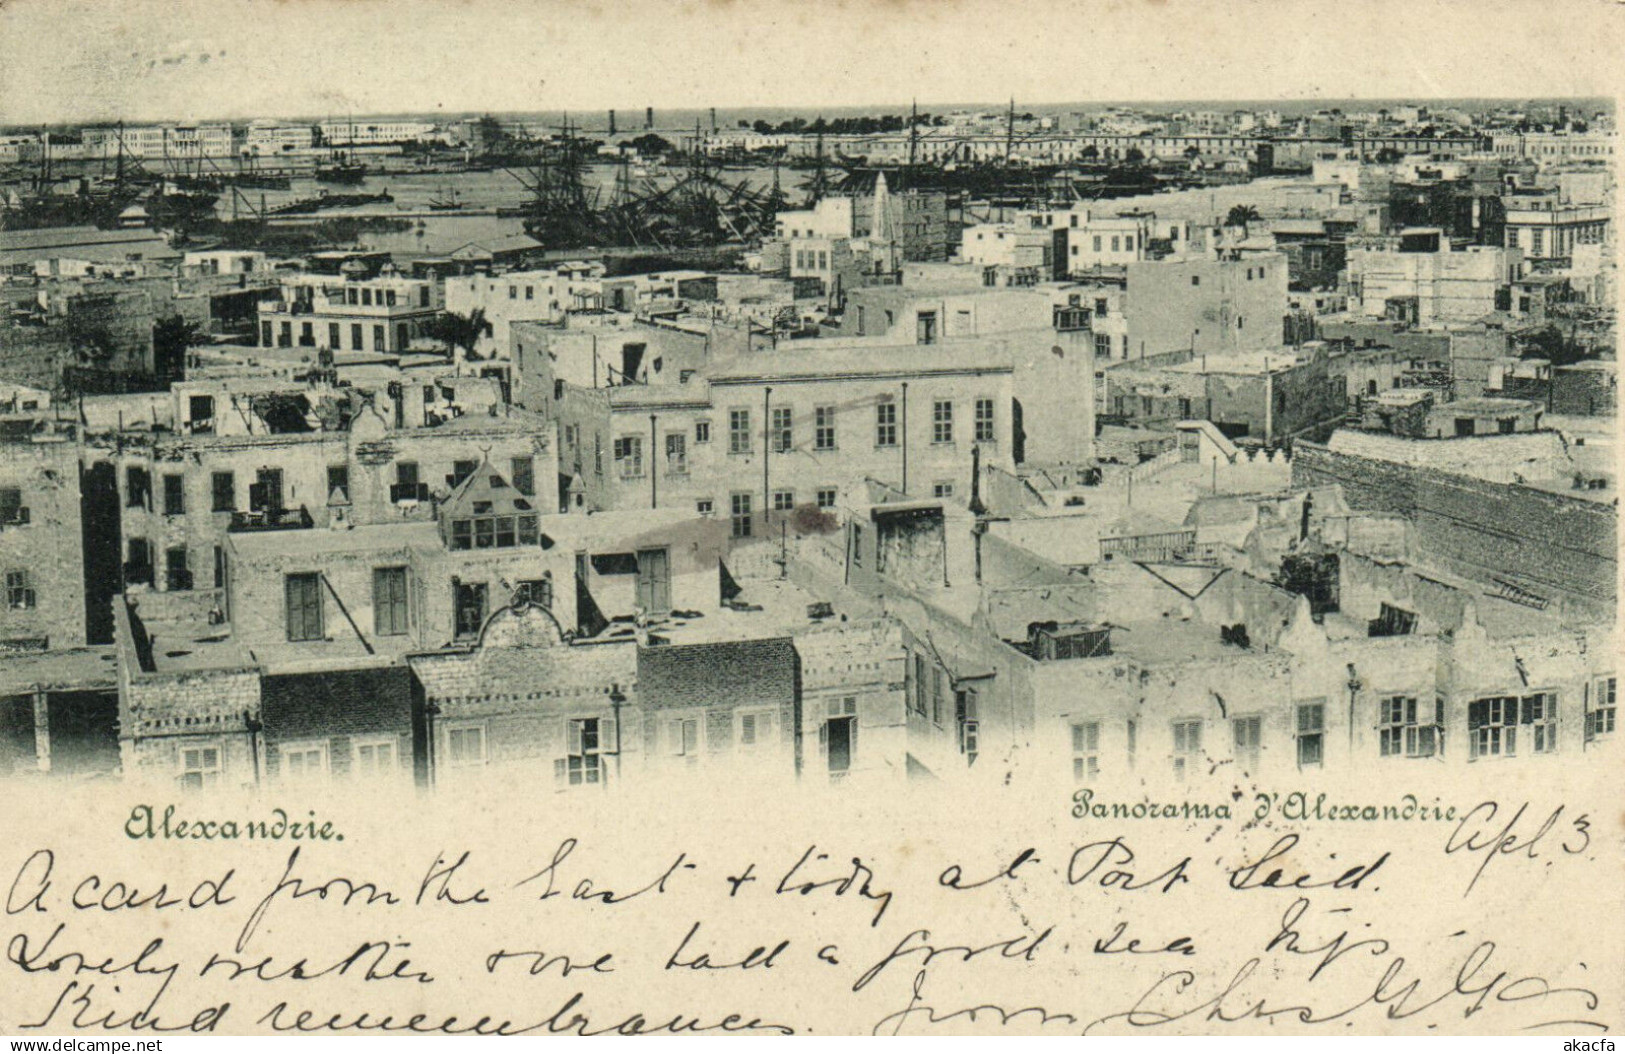 Alexandrie.
Panorama d'Alexandrie.
Apl. 3.
A card from the East & today at Port Said.
Lovely weather & we had a good sea trip
Kind remembrances. from Chas. G.
akacfa.com
akacfa